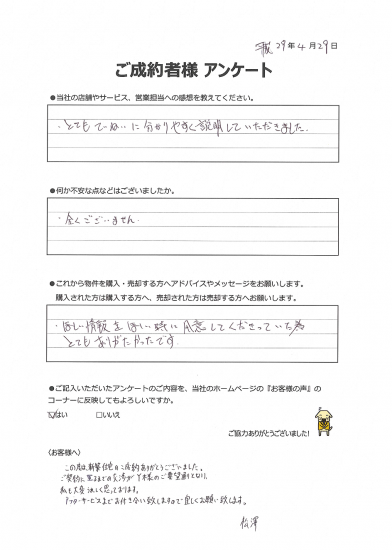 平成 29年 4月 29日
ご成約者様 アンケート
●当社の店舗やサービス、営業担当への感想を教えてください。
・とてもていねいに分かりやすく説明していただきました。
●何か不安な点などはございましたか。
・全くございません。
●これから物件を購入・売却する方へアドバイスやメッセージをお願いします。
購入された方は購入する方へ、売却された方は売却する方へお願いします。
・ほしい情報をほしい時に用意してくださっていた為
とてもありがたかったです。
●ご記入いただいたアンケートのご内容を、当社のホームページの『お客様の声』の
コーナーに反映してもよろしいですか。
☑はい □いいえ
ご協力ありがとうございました!
《お客様へ》
この度は、新築住宅ご成約ありがとうございました。
ご契約に至るまでの交渉が Y様のご希望通りとなり、
私も大変嬉しく思っております。
アフターサービスまでお付き合い致しますので宜しくお願い致します。